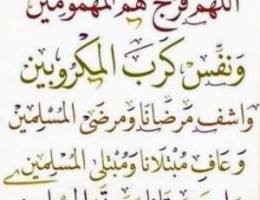 اللهم فرج هم المهمومين
وَنَفِّسْ كَرْبَ المَكْرُوبِين
وَاشْفِ مَرْضَانَا وَمَرْضَى المُسْلِمِين
وَعَافِ مُبْتَلَانَا وَمُبْتَلَى المُسْلِمِين